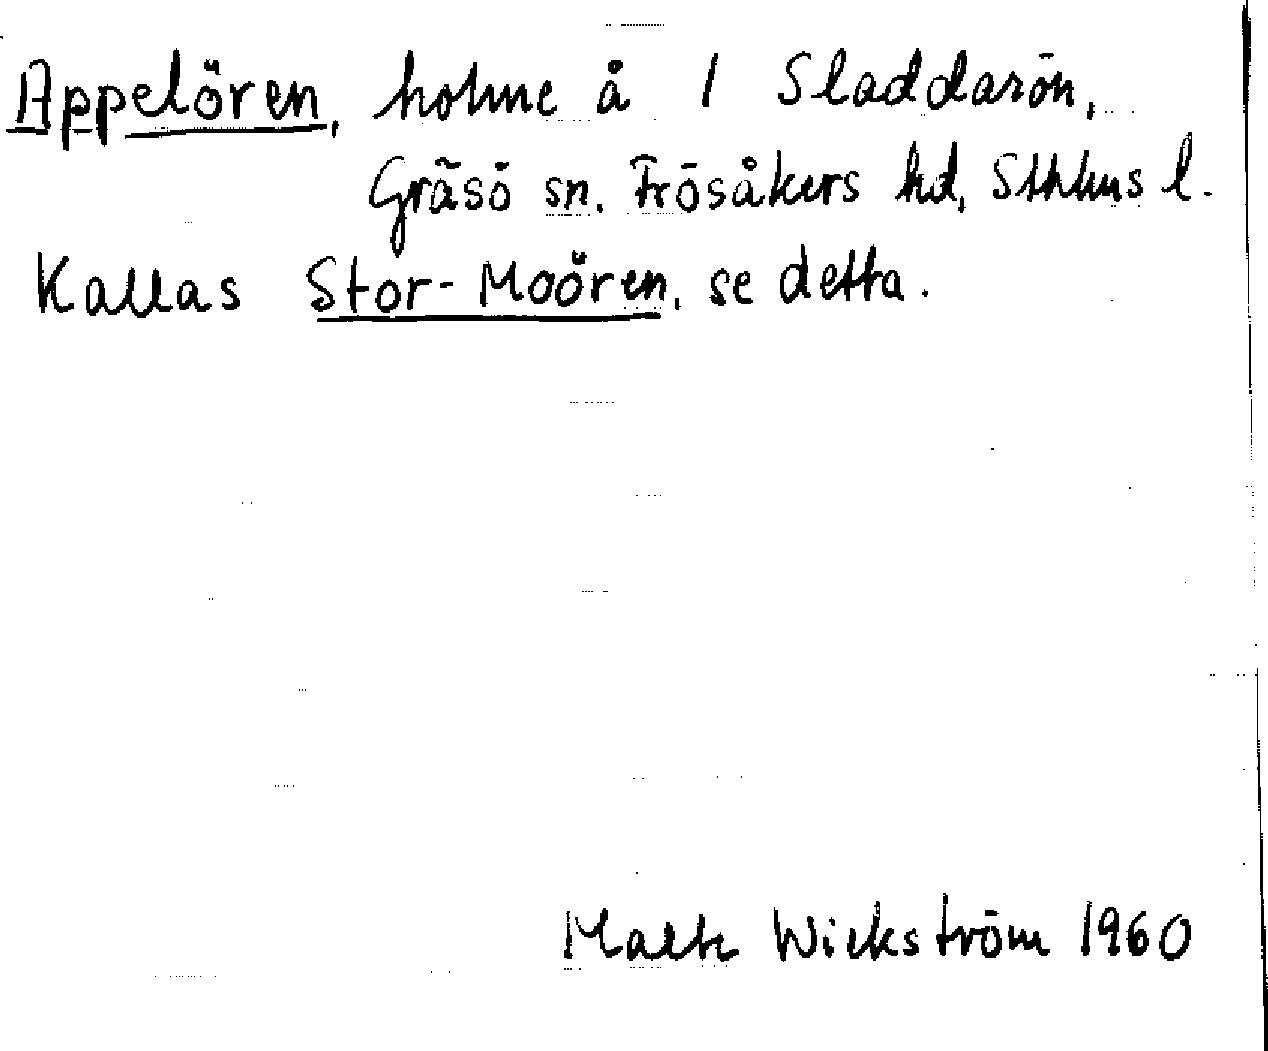 Appelören, holme å 1 Sladdarön,
Gräsö sn. Frösåkers hd, Sthlms l.
Kallas Stor-Moören, se detta.
Malte Wickström 1960